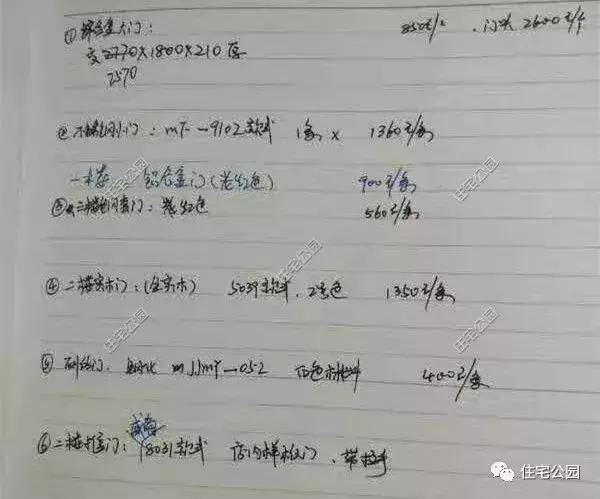 ① 铝合金大门: 850元/㎡、门头2600元/个
2770×1800×210厚
2570
② 不锈钢小门: MT-9102款式 1套× 1360元/套
一楼 铝合金门(卷红色) 900元/套
③ 二楼 门: 红色 560元/套
④ 二楼实木门:(全实木) 5039款式、2号色 1350元/套
⑤ 厕所门、钢化 JJMT-052 白色材料 400元/套
⑥ 二楼 门: 8031款式 店内样板门、带
住宅公园
住宅公园
住宅公园
住宅公园
住宅公园
住宅公园